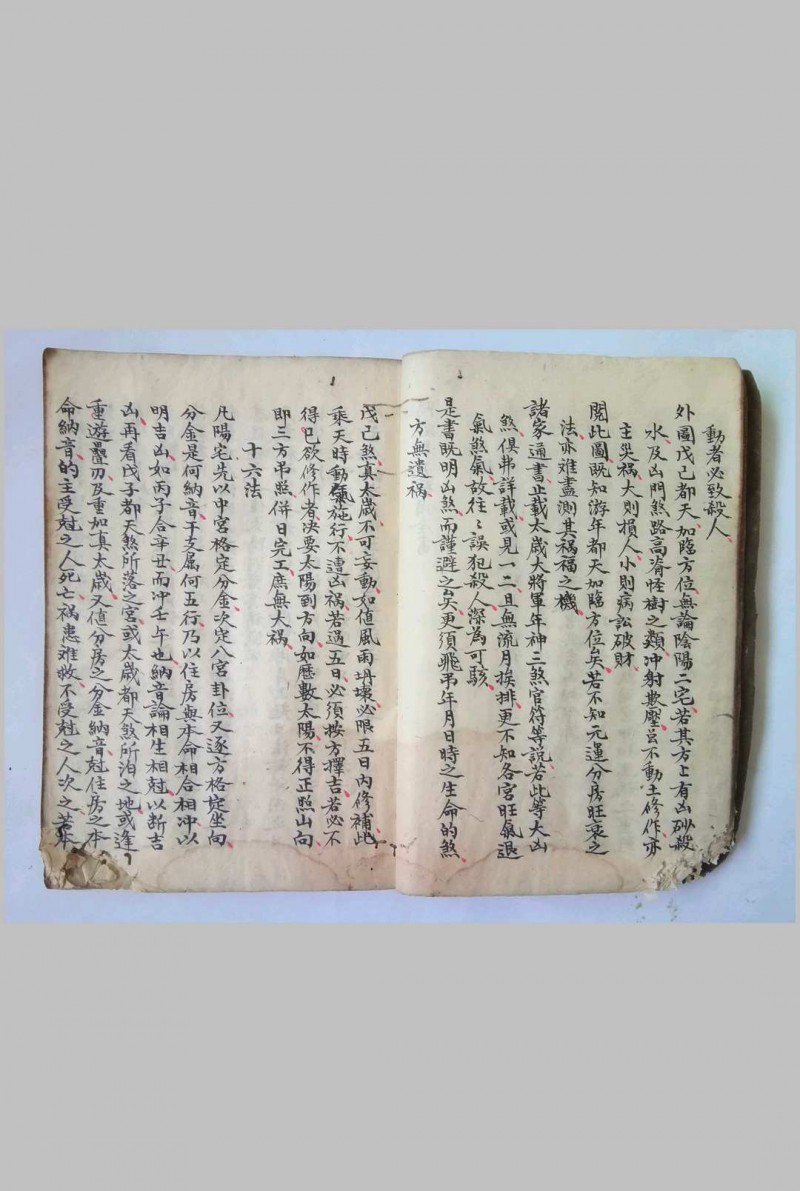 動者必致殺人
外圖戊己都天加臨方位無論陰陽二宅若其方上有凶砂殺
水及凶門煞路高脊怪樹之類冲射欺壓虽不動土修作亦
主災禍大則損人小則病訟破財
閱此圖既知游年都天加臨方位矣若不知元運分房旺衰之
法亦难盡測其禍福之機
諸家通書止載太歲大將軍年神三煞官符等説若此等大凶
煞俱弗詳載或見一二且無流月挨排更不知各宮旺氣退
氣煞氣故往〻誤犯殺人深為可駭
是書既明凶煞而謹避之矣更須飛弔年月日時之生命的煞
方無遺禍
戊己煞真太歲不可妄動如值風雨坍壞必限五日內修補此
乘天時動氣施行不遭凶禍若過五日必須按方擇吉若必不
得已欲修作者决要太陽到方向如歷數太陽不得正照山向
即三方弔照併日完工庶無大禍
十六法
凡陽宅先以中宮格定分金次定八宮卦位又逐方格定坐向
分金是何納音干支属何五行乃以住房與本命相合相冲以
明吉凶如丙子合辛丑而冲壬午也納音論相生相尅以断吉
凶再看戊子都天煞所落之宮或太歲都天煞所泊之地或逢
重遊疊刃及重如真太歲又值分房之分金納音尅住房之本
命納音的主受尅之人死亡禍患难救不受尅之人次之若本